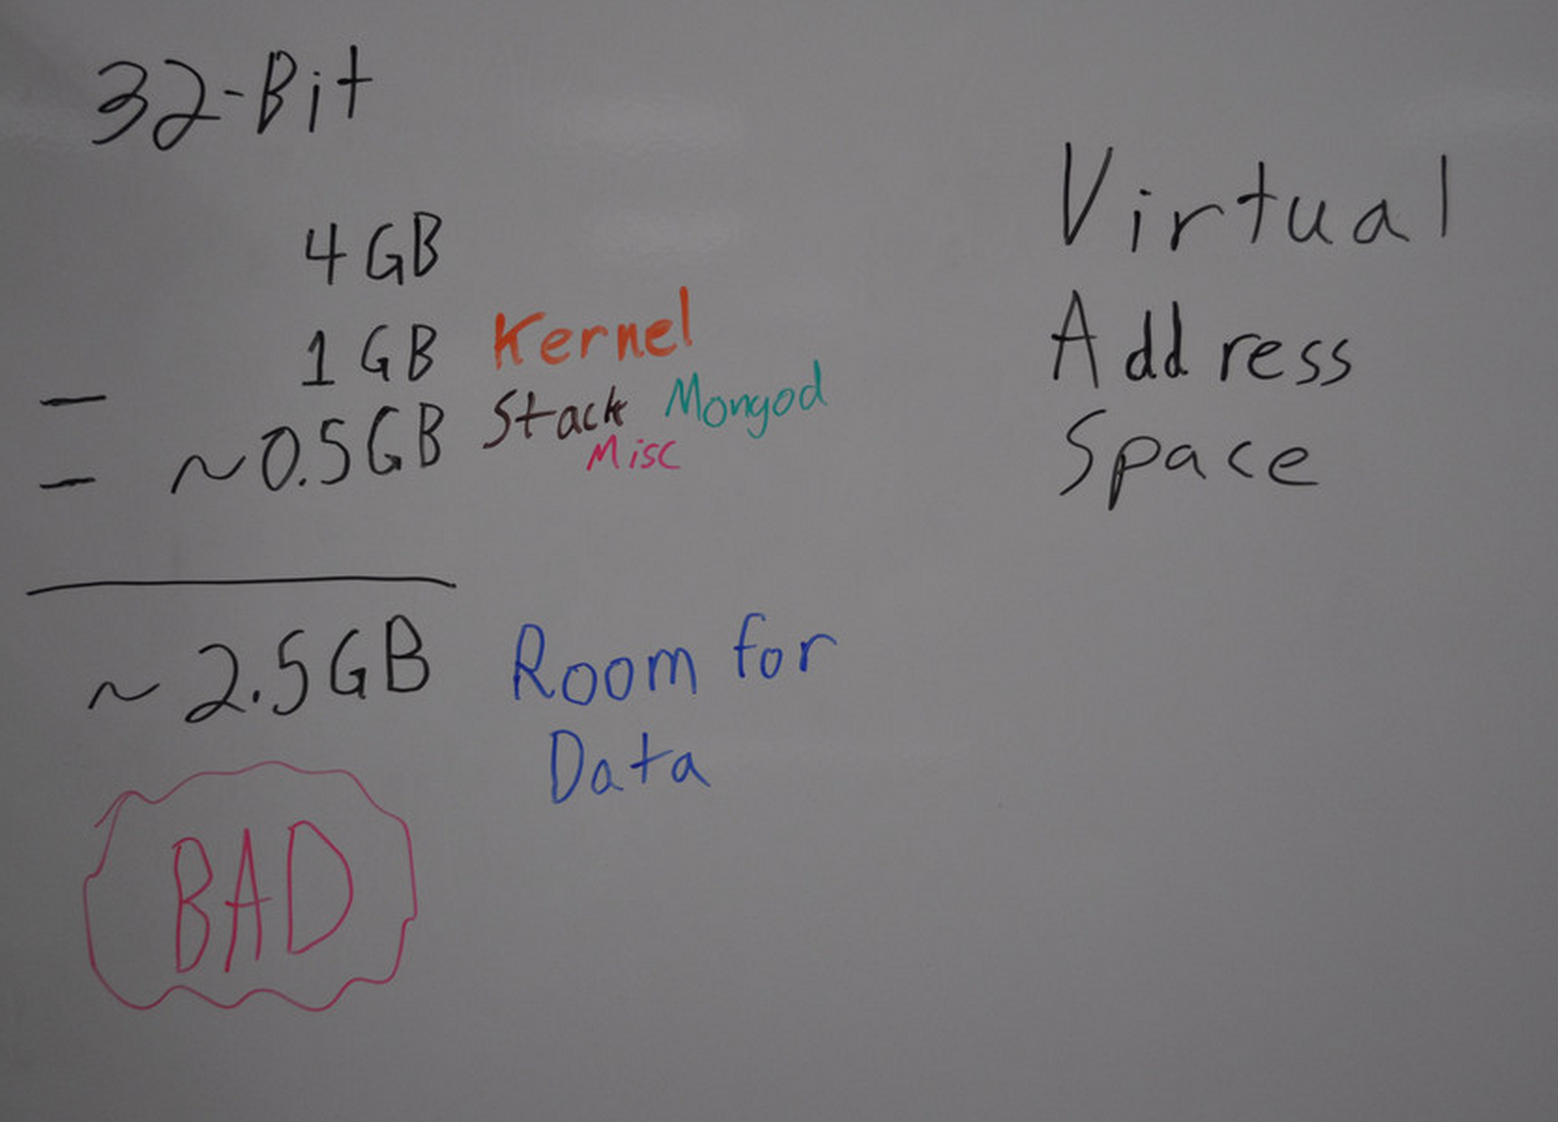 32-Bit
4GB
1GB Kernel
- ~0.5GB Stack Mongod
- Misc
~2.5GB Room for
Data
BAD
Virtual
Address
Space